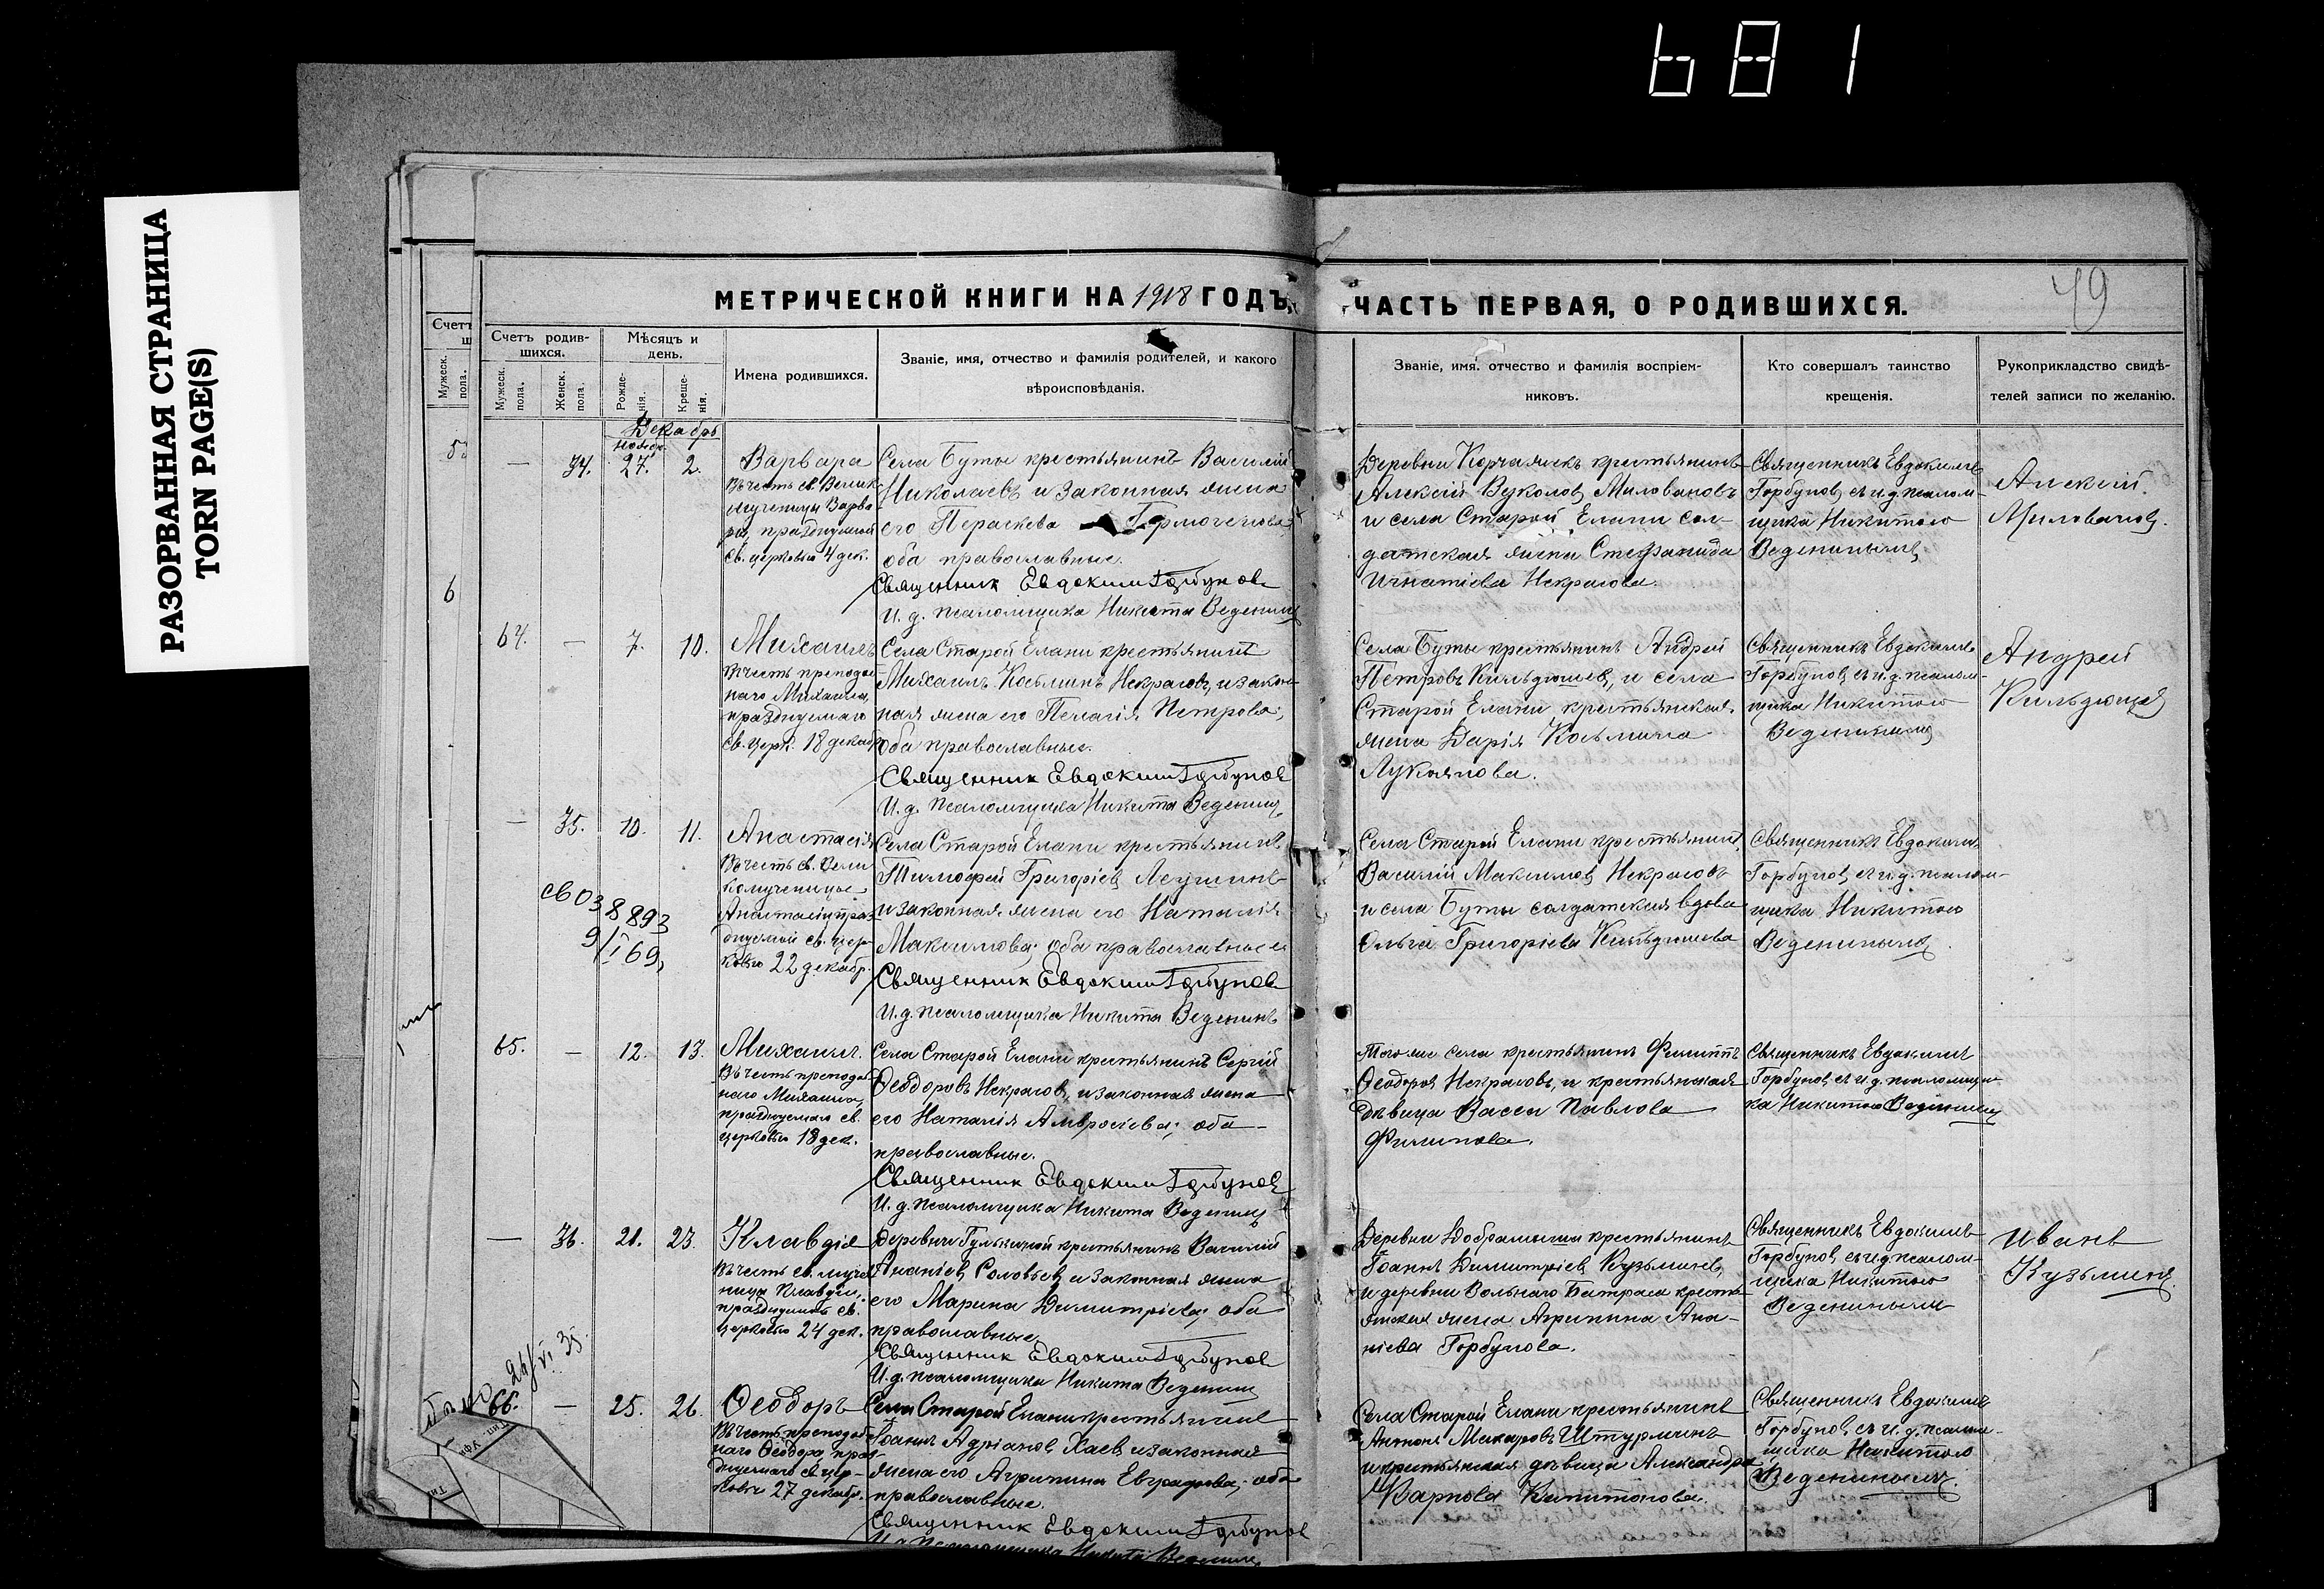 681
РАЗОРВАННАЯ СТРАНИЦА
TORN PAGE(S)
МЕТРИЧЕСКОЙ КНИГИ НА 1918 ГОДЪ,
ЧАСТЬ ПЕРВАЯ, О РОДИВШИХСЯ.
49
Счетъ родив-
шихся.
Мужеск. пола.
Женск. пола.
Мѣсяцъ и
день.
Рожде-
нія.
Креще-
нія.
Имена родившихся.
Званіе, имя, отчество и фамилія родителей, и какого
вѣроисповѣданія.
Званіе, имя, отчество и фамилія воспріем-
никовъ.
Кто совершалъ таинство
крещенія.
Рукоприкладство свидѣ-
телей записи по желанію.
Декабрь
Ноябр.
— 34. 27. 2.
Варвара
въ честь св. Велик.
мученицы Варва-
ры, празднуемой
св. церковью 4 дек.
Села Буты крестьянинъ Василій
Николаевъ и законная жена
его Параскева Гермогенова
оба православные.
Священник Евдоким Горбунов
И. д. псаломщика Никита Веденин
Деревни крестьянинъ
Алексій Вуколов Миловановъ
и села Старой Елани сол-
датская жена Стефанида
Игнатіева Некрасова.
Священникъ Евдокимъ
Горбунов, съ и. д. псалом-
щика Никитою
Ведениным
Алексій
Миловановъ.
64. — 7. 10.
Михаилъ
въ честь преподоб-
наго Михаила,
празднуемаго
св. церк. 18 декабр.
Села Старой Елани крестьянинъ
Михаилъ Косьминъ Некрасовъ, и закон-
ная жена его Пелагія Петрова;
оба православные.
Священник Евдоким Горбунов
И. д. псаломщика Никита Веденин
Села Буты крестьянинъ Андрей
Петровъ Кильдюшев, и села
Старой Елани крестьянская
жена Дарія Косьмина
Лукьянова.
Священникъ Евдокимъ
Горбунов, съ и. д. псалом-
щика Никитою
Ведениным
Андрей
Кильдюшев
— 35. 10. 11.
Анастасія
въ честь св. Вели-
комученицы
Анастасіи праз-
днуемой св. цер-
ковью 22 декабр.
св 038893
9/I 69,
Села Старой Елани крестьянинъ
Тимофей Григоріев Леушинъ
и законная жена его Наталія
Максимова; оба православные
Священник Евдоким Горбунов
И. д. псаломщика Никита Веденинъ
Села Старой Елани крестьянин
Василій Максимов Некрасовъ
и села Буты солдатская вдова
Ольга Григоріева Кильдюшева
Священникъ Евдокимъ
Горбунов, съ и. д. псалом-
щика Никитою
Ведениным
65. — 12. 13.
Михаилъ.
въ честь преподоб-
наго Михаила,
празднуемаго св.
церковью 18 дек.
Села Старой Елани крестьянинъ Сергій
Ѳеодоровъ Некрасов, и законная жена
его Наталія Амвросіева; оба
православные.
Священник Евдоким Горбунов
И. д. псаломщика Никита Веденин
Того же села крестьянинъ Филиппъ
Ѳеодоров Некрасовъ, и крестьянская
дѣвица Васса Павлова
Филипова.
Священникъ Евдокимъ
Горбунов, съ и. д. псаломщи-
ка Никитою Ведениным
— 36. 21. 23.
Клавдія
въ честь св. муче-
ницы Клавдіи,
празднуемой св.
церковью 24 дек.
Деревни Гулькиной крестьянинъ Василій
Ананіев Соловьев, и законная жена
его Марина Димитріева; оба
православные.
Священник Евдоким Горбунов
И. д. псаломщика Никита Веденин
Деревни Добрамыши крестьянинъ
Іоаннъ Димитріев Кузьминъ,
и деревни Вольнаго Батраса кресть-
янская жена Агрипина Ана-
ніева Горбунова.
Священникъ Евдокимъ
Горбунов, съ и. д. псалом-
щика Никитою
Ведениным
Иванъ
Кузьминъ
24/VI 35
66. — 25. 26.
Ѳеодоръ
въ честь преподоб-
наго Ѳеодора, праз-
днуемаго св. цер-
ковью 27 декабр.
Села Старой Елани крестьянинъ
Іоаннъ Адріанов Хаев и законная
жена его Агрипина Евграфова; оба
православные.
Священник Евдоким Горбунов
И. д. псаломщика Никита Веденин
Села Старой Елани крестьянинъ
Антонъ Макаровъ Штурминъ
и крестьянская дѣвица Александра
Карпова Капитонова.
Священникъ Евдокимъ
Горбунов, съ и. д. псалом-
щика Никитою
Ведениным.